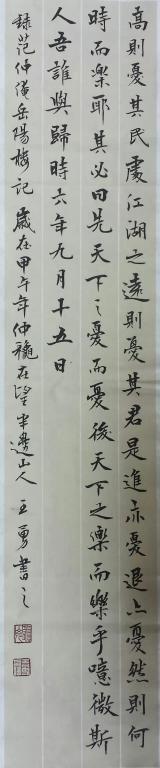 高則憂其民處江湖之遠則憂其君是進亦憂退亦憂然則何
時而樂耶其必曰先天下之憂而憂後天下之樂而樂乎噫微斯
人吾誰與歸時六年九月十五日
録范仲淹岳陽樓記 歲在甲午年仲穐在望半邊山人王勇書之